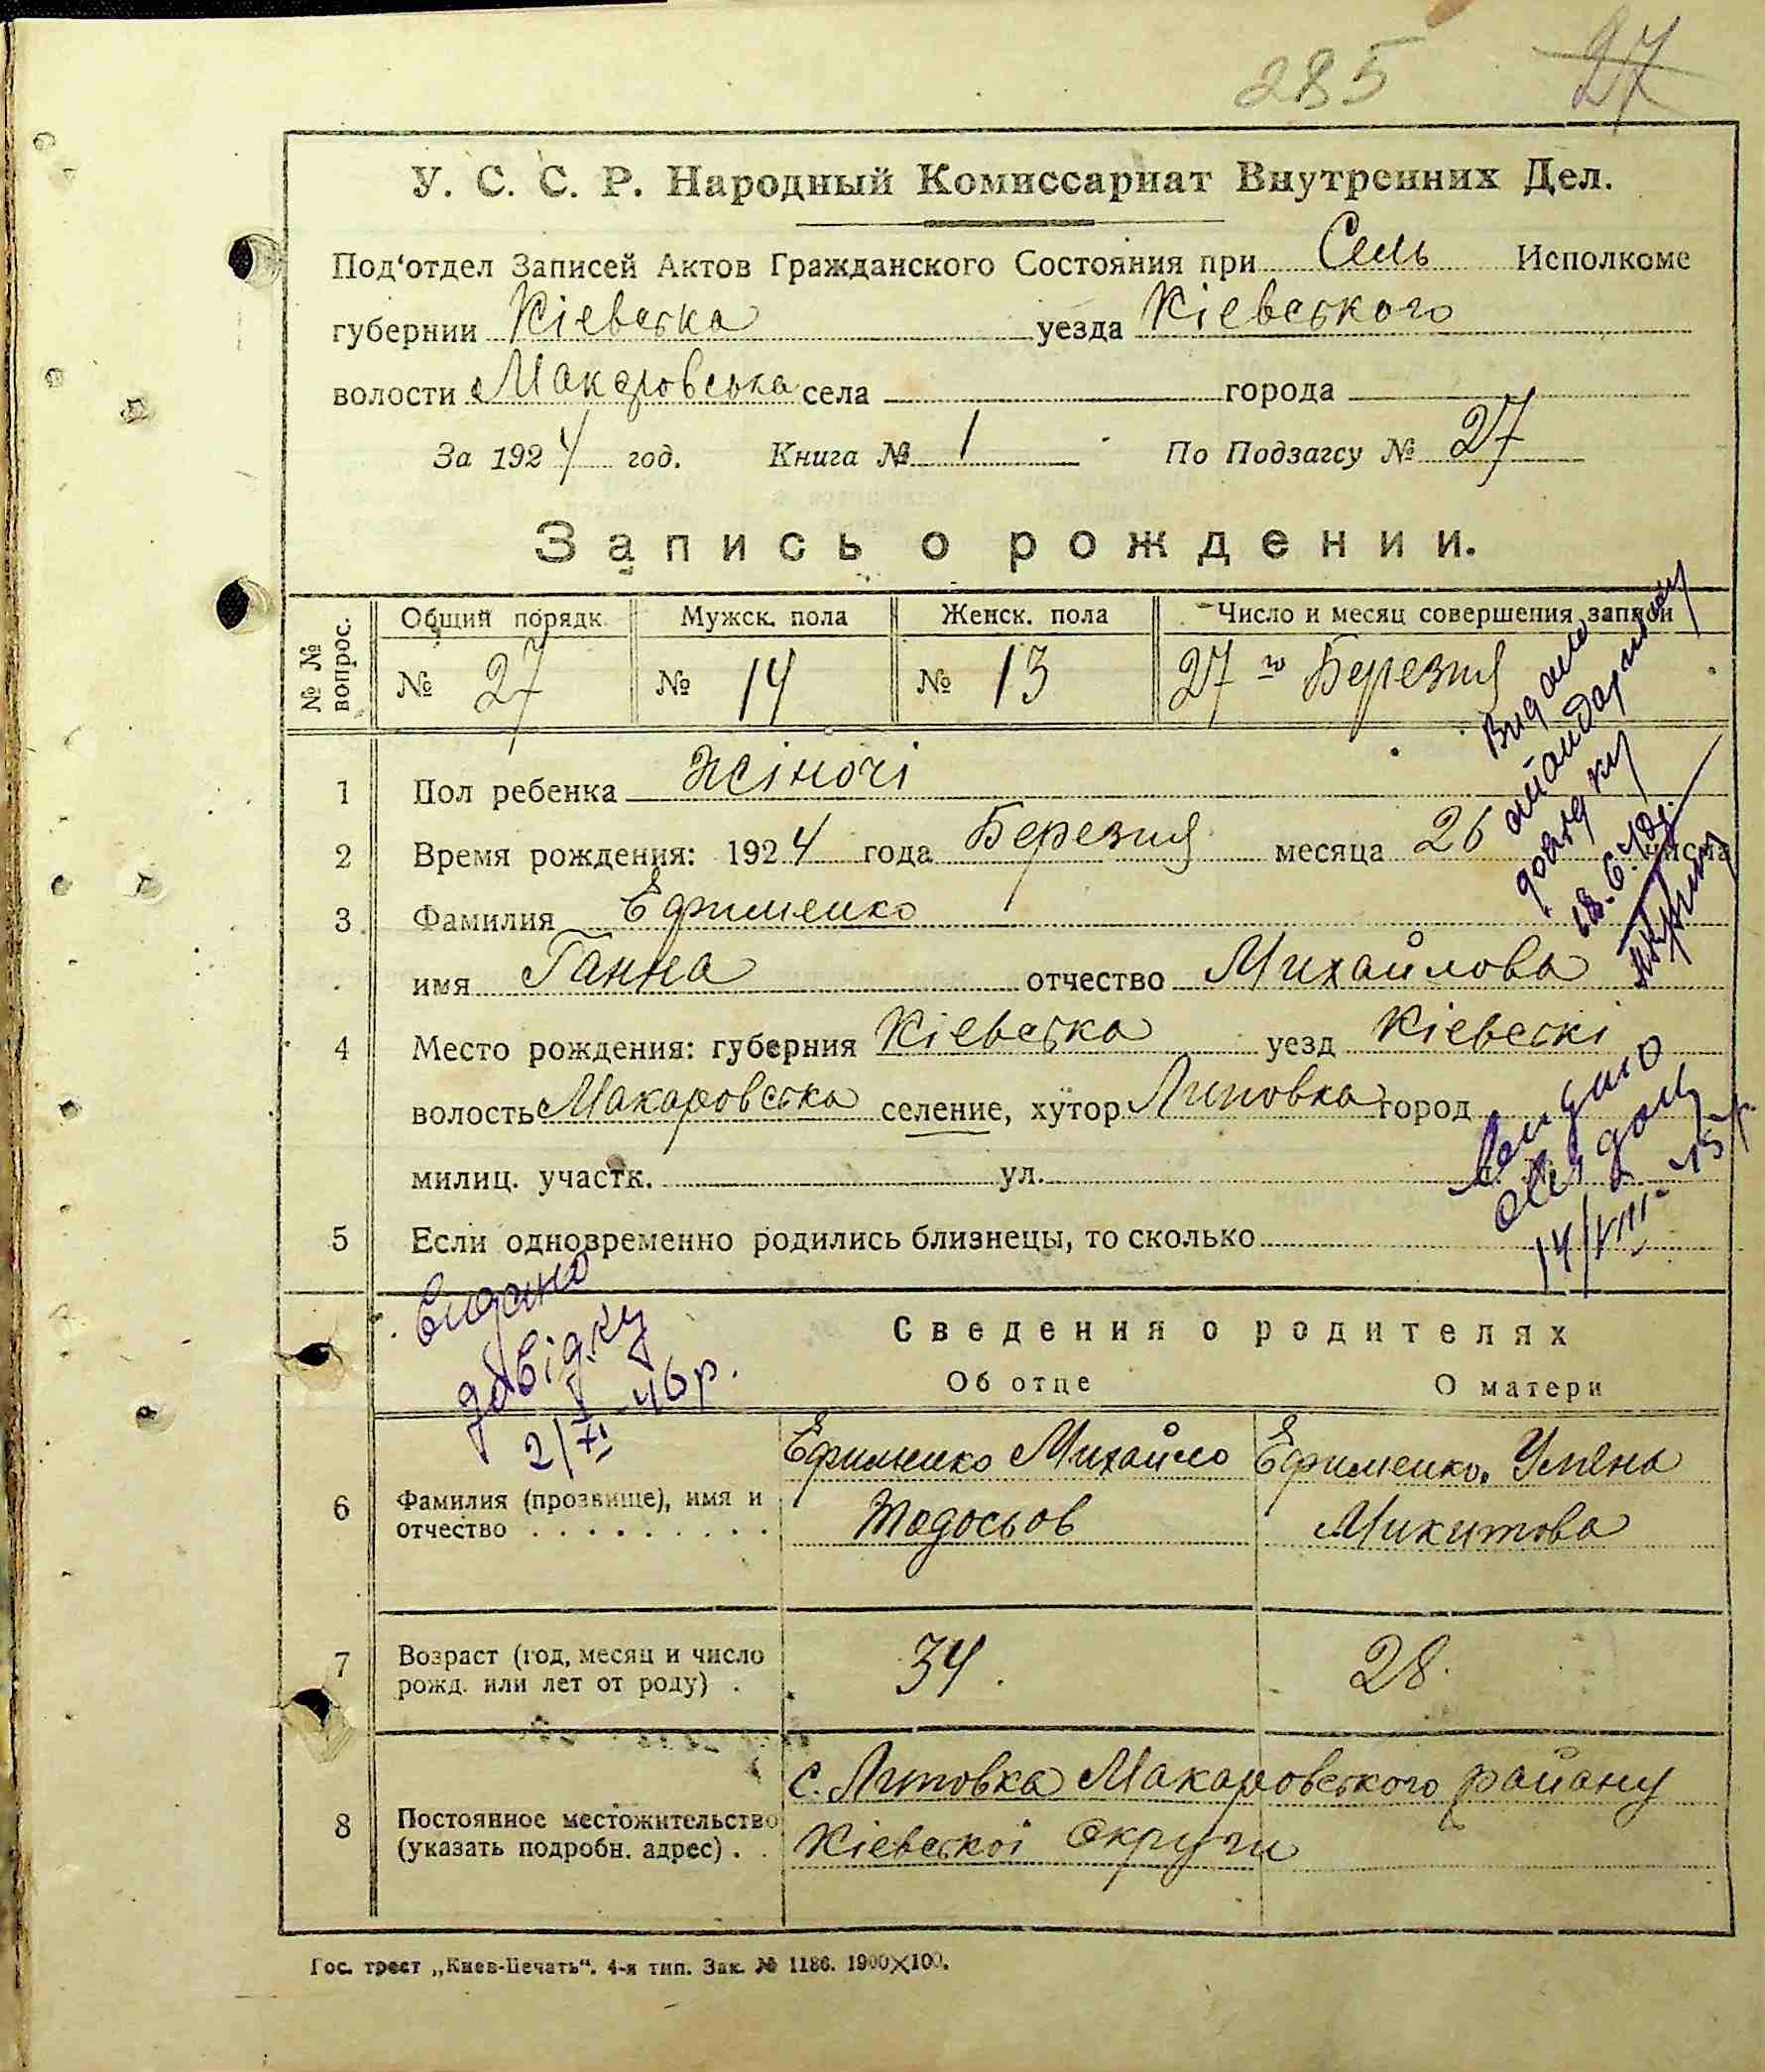 285 27
У. С. С. Р. Народный Комиссариат Внутренних Дел.
Под‘отдел Записей Актов Гражданского Состояния при Сель Исполкоме
губернии Кіевська уезда Кіевського
волости Макаровська села города
За 1924 год. Книга № 1 По Подзагсу № 27
Запись о рождении.
№ № вопрос.
Общий порядк. Мужск. пола Женск. пола Число и месяц совершения записи
№ 27 № 14 № 13 27го Березня
1 Пол ребенка Жіночі
2 Время рождения: 1924 года Березня месяца 26 числа
3 Фамилия Ефименко
имя Ганна отчество Михайлова
4 Место рождения: губерния Кіевська уезд Кіевскі
волость Макаровська селение, хутор Липовка город
милиц. участк. ул.
5 Если одновременно родились близнецы, то сколько
Видано
довідку
18.6.
14/VIII-45р.
Видано
довідку
2/XI-46р.
Сведения о родителях
Об отце О матери
6 Фамилия (прозвище), имя и
отчество . . . . . . . . . .
Ефименко Михайло Ефименко Уляна
Тодосьов Микитова
7 Возраст (год, месяц и число
рожд. или лет от роду) .
34. 28.
8 Постоянное местожительство
(указать подробн. адрес) . .
с. Липовка Макаровського району
Кіевскоі Округи
Гос. трест „Киев-Печать“. 4-я тип. Зак. № 1186. 1900×100.